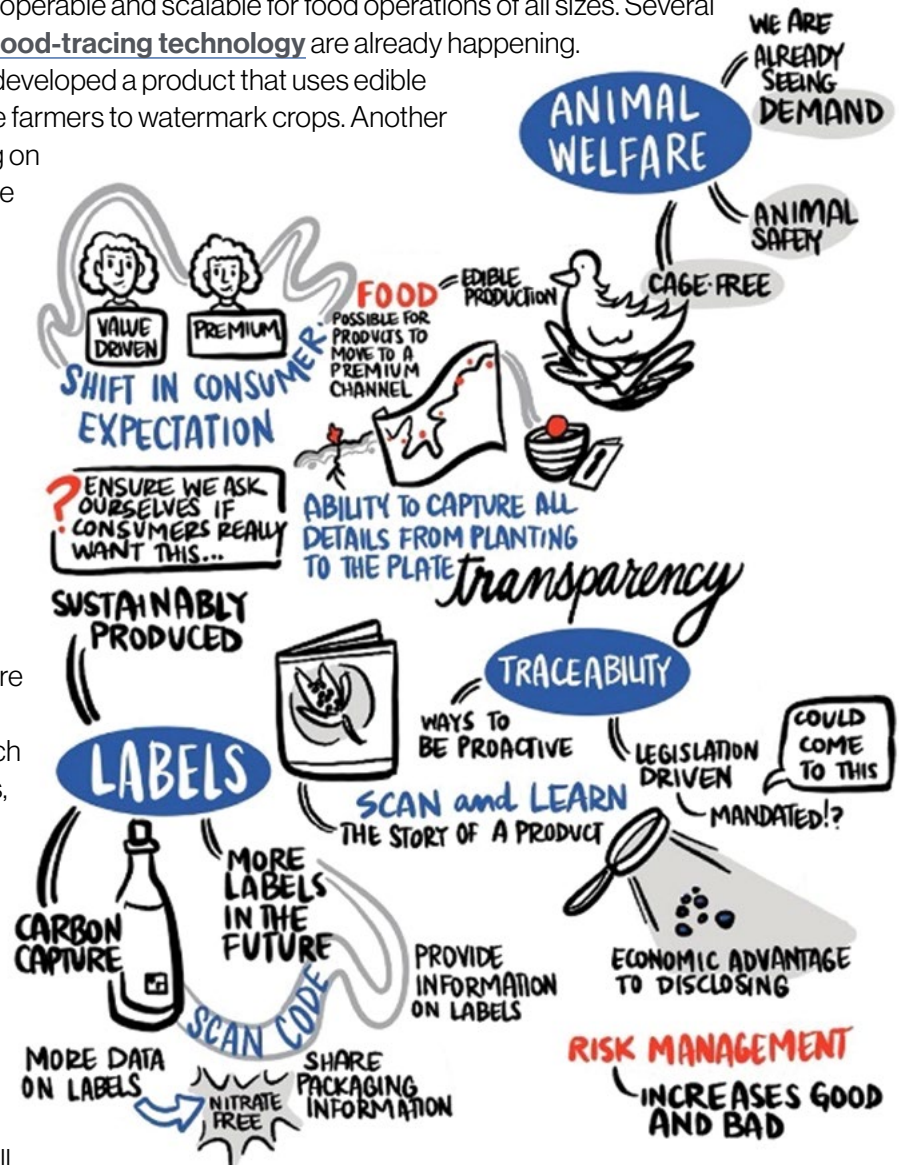 operable and scalable for food operations of all sizes. Several
ood-tracing technology are already happening.
developed a product that uses edible
e farmers to watermark crops. Another
g on
e
WE ARE
ALREADY
SEEING
DEMAND
ANIMAL
WELFARE
ANIMAL
SAFETY
CAGE-FREE
VALUE
DRIVEN
PREMIUM
SHIFT IN CONSUMER
EXPECTATION
FOOD
EDIBLE
PRODUCTION
POSSIBLE FOR
PRODUCTS TO
MOVE TO A
PREMIUM
CHANNEL
? ENSURE WE ASK
OURSELVES IF
CONSUMERS REALLY
WANT THIS...
ABILITY TO CAPTURE ALL
DETAILS FROM PLANTING
TO THE PLATE
transparency
SUSTAINABLY
PRODUCED
re
ch
s,
LABELS
TRACEABILITY
WAYS TO
BE PROACTIVE
LEGISLATION
DRIVEN
MANDATED!?
COULD
COME
TO THIS
SCAN and LEARN
THE STORY OF A PRODUCT
CARBON
CAPTURE
MORE
LABELS
IN THE
FUTURE
SCAN CODE
PROVIDE
INFORMATION
ON LABELS
ECONOMIC ADVANTAGE
TO DISCLOSING
MORE DATA
ON LABELS
NITRATE
FREE
SHARE
PACKAGING
INFORMATION
RISK MANAGEMENT
INCREASES GOOD
AND BAD
ll